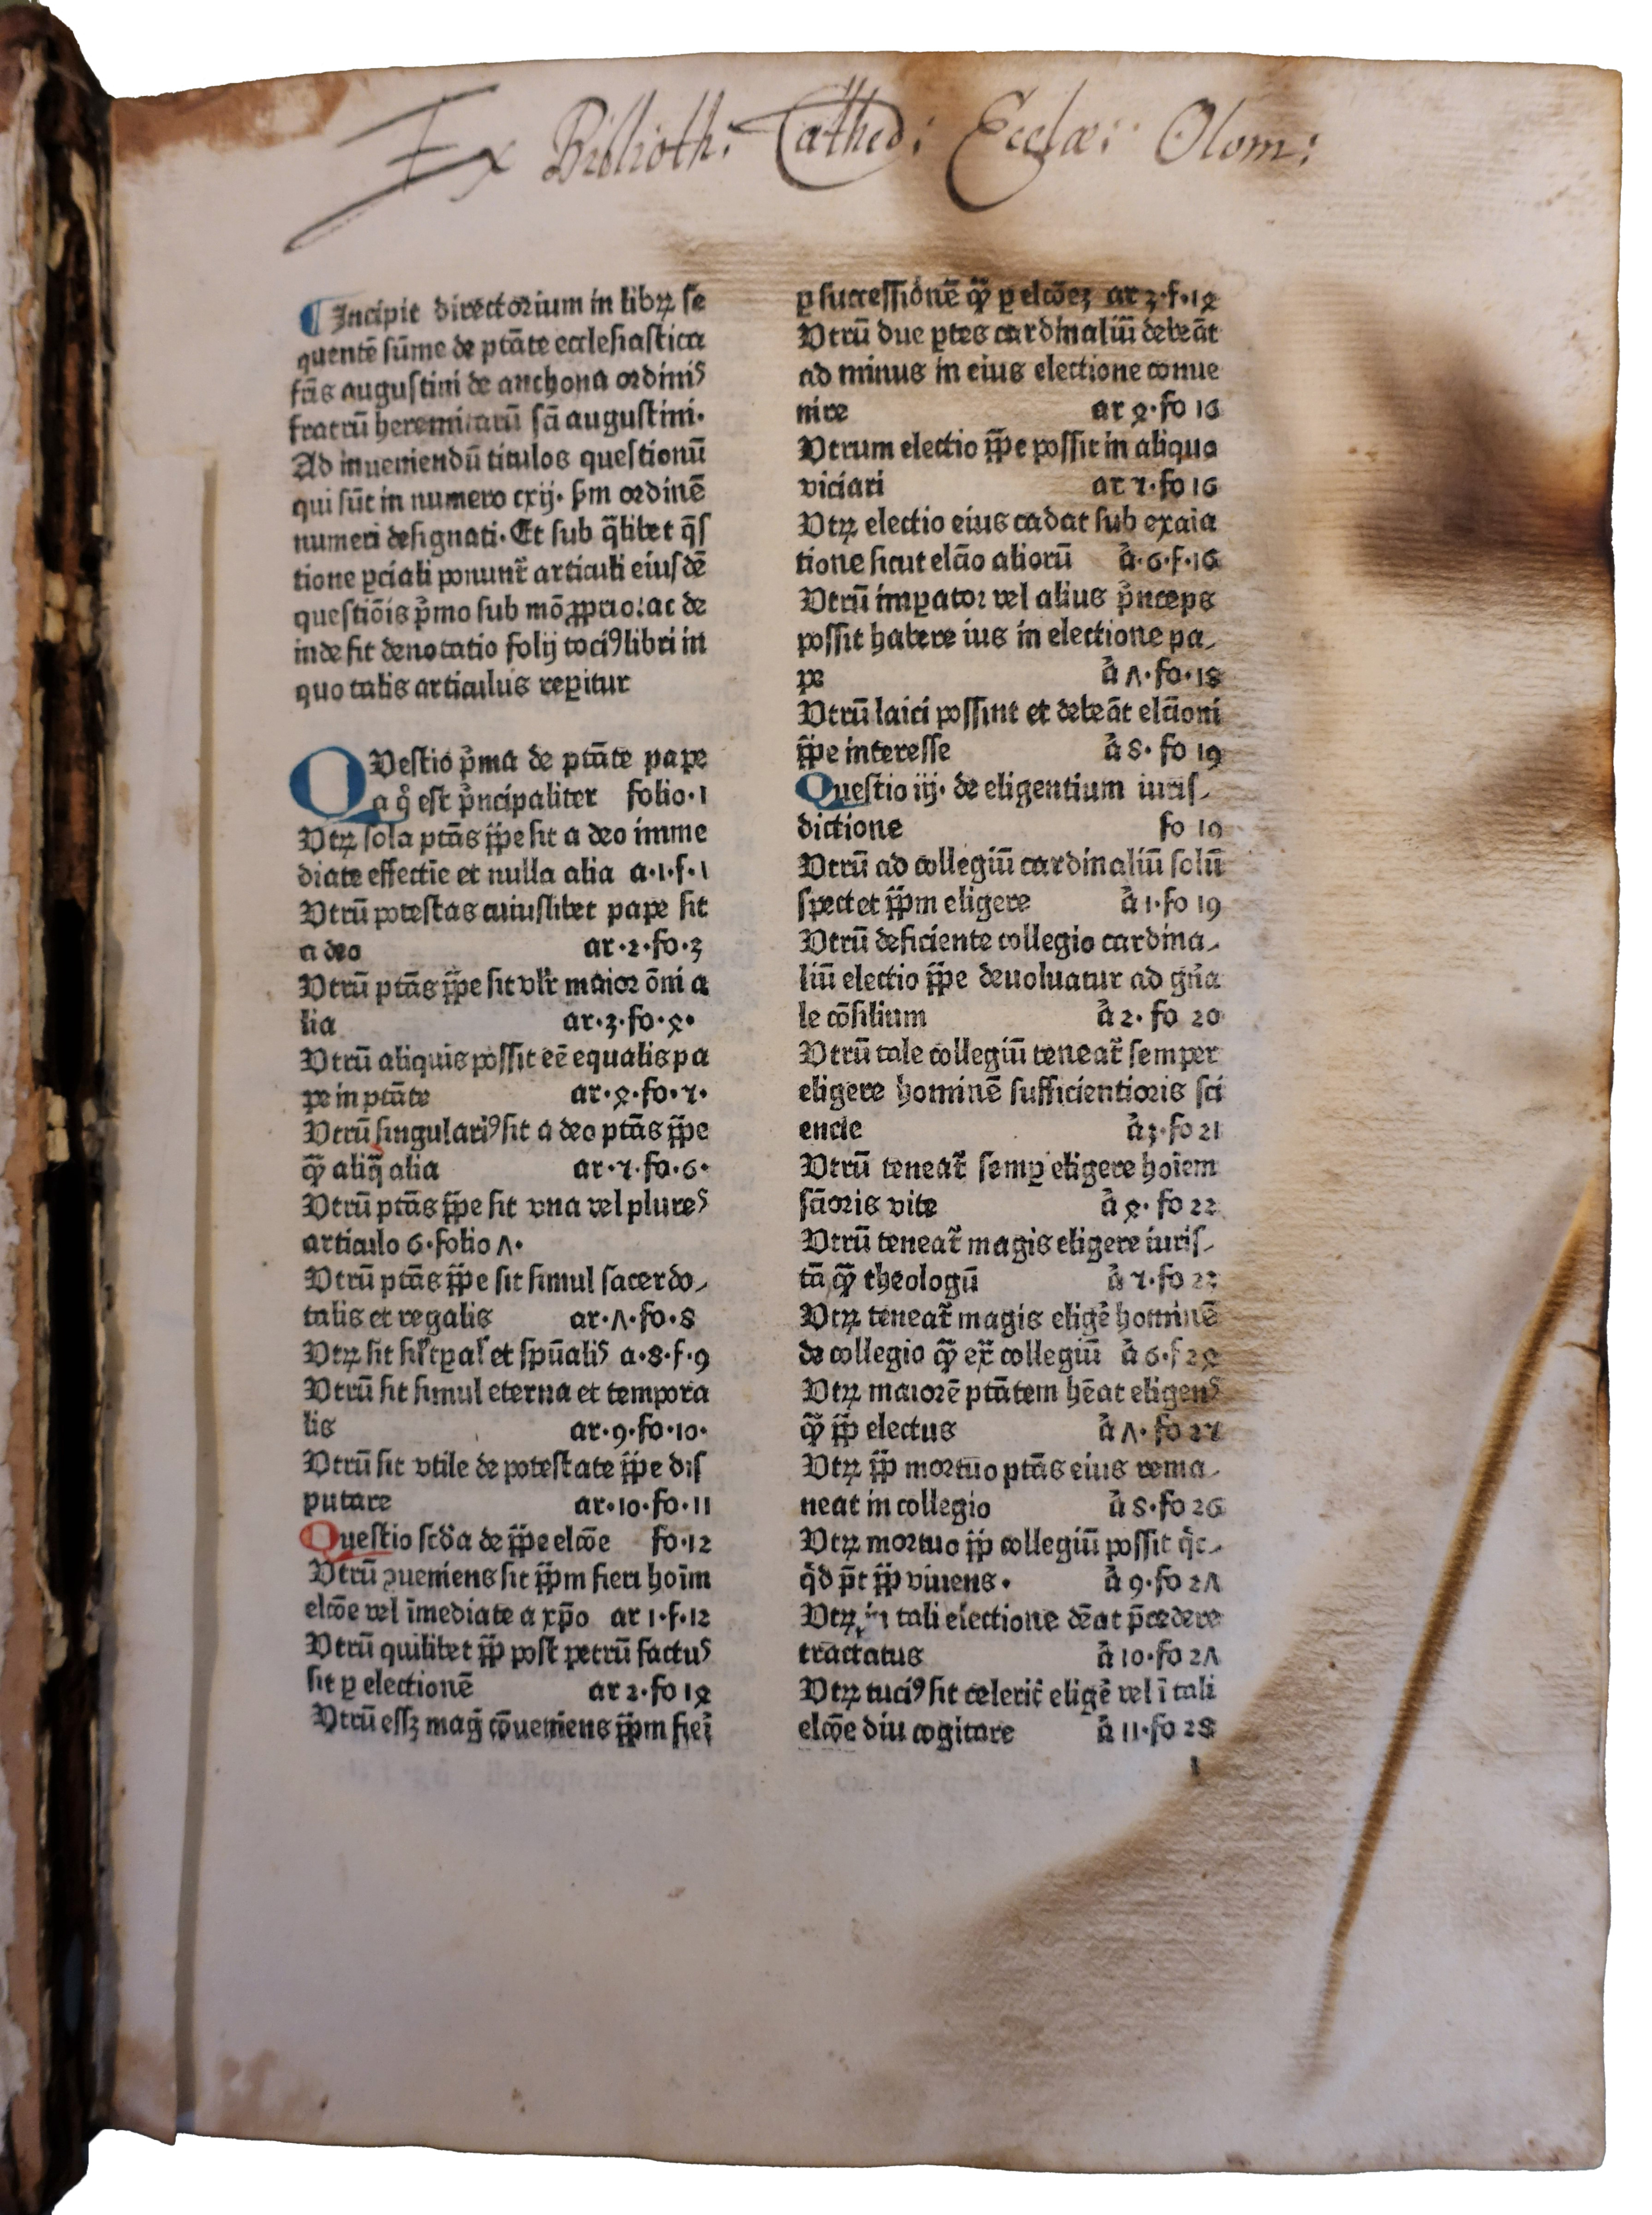 Ex Biblioth: Cathed: Ecclæ: Olom:
Incipit directorium in libꝝ ſe
quentē ſūme de ptāte eccleſiaſtica
fr̄is auguſtini de anchona ordinis
fratrū heremitarū ſcī auguſtini·
Ad inueniendū titulos queſtionū
qui ſūt in numero cxij· ẜm ordinē
numeri deſignati· Et ſub q̄libet q̄ſ
tione ꝑciali ponunt᷑ articuli eiuſdē
queſtiōis p̄mo ſub mō ꝓprio: ac de
inde fit denotatio folij tociꝰ libri in
quo talis articulus reꝑitur
QVeſtio p̄ma de ptāte pape
a qͦ eſt p̄ncipaliter folio·1
Vtꝝ ſola ptās ꝑ̄pe ſit a deo imme
diate effectīe et nulla alia a·1·f·1
Vtrū poteſtas cuiuſlibet pape ſit
a deo ar·2·fo·3
Vtrū ptās p̄pe ſit vlr̄ maior ōni a
lia ar·3·fo·4·
Vtrū aliquis poſſit eē equalis pa
pe in ptāte ar·4·fo·5·
Vtrū ſingulariꝰ ſit a deo ptās p̄pe
qꝫ̄ aliq̄ alia ar·5·fo·6·
Vtrū ptās p̄pe ſit vna vel plures
articulo 6·folio 7·
Vtrū ptās p̄pe ſit ſimul ſacerdo⸗
talis et regalis ar·7·fo·8
Vtꝝ ſit ſil̄ tꝑal̄ et ſpūalis a·8·f·9
Vtrū ſit ſimul eterna et tempora
lis ar·9·fo·10·
Vtrū ſit vtile de poteſtate p̄pe diſ
putare ar·10·fo·11
Queſtio ſcd̄a de p̄pe elcōe fo·12
Vtrū ꝯueniens ſit p̄pm fieri hoīm
elcōe vel īmediate a xp̄o ar 1·f·12
Vtrū quilibet p̄p poſt petrū factus
ſit ꝑ electionē ar 2·fo 14
Vtrū eſſꝫ maḡ cōueniens p̄pm fieī
ꝑ ſucceſſionē qꝫ̄ ꝑ elcōeꝫ ar 3·f·14
Vtrū due ꝑtes cardinaliū debeāt
ad minus in eius electione conue
nire ar 4·fo 16
Vtrum electio p̄pe poſſit in aliquo
viciari ar 5·fo 16
Vtꝝ electio eius cadat ſub exaīa
tione ſicut elcīo aliorū a᷑·6·f·16
Vtrū imꝑator vel alius p̄nceps
poſſit habere ius in electione pa⸗
pe a᷑ 7·fo·18
Vtrū laici poſſint et debeāt elcīoni
p̄pe intereſſe a᷑ 8· fo 19
Queſtio iij· de eligentium iuriſ⸗
dictione fo 19
Vtrū ad collegiū cardinaliū ſolū
ſpectet p̄pm eligere a᷑ 1·fo 19
Vtrū deficiente collegio cardina⸗
liū electio p̄pe deuoluatur ad gn̄a
le cōſilium a᷑ 2· fo 20
Vtrū tale collegiū teneat᷑ ſemper
eligere hominē ſufficientioris ſci
encie a᷑ 3·fo 21
Vtrū teneat᷑ ſemꝑ eligere hoīem
ſcīoris vite a᷑ 4· fo 22
Vtrū teneat᷑ magis eligere iuriſ⸗
tā qꝫ̄ theologū a᷑ 5·fo 23
Vtꝝ teneat᷑ magis eligē hominē
de collegio qꝫ̄ ex᷑ collegiū a᷑ 6·f 24
Vtꝝ maiorē ptātem hēat eligens
qꝫ̄ p̄p electus a᷑ 7·fo 25
Vtꝝ p̄p mortuo ptās eius rema⸗
neat in collegio a᷑ 8·fo 26
Vtꝝ mortuo p̄p collegiū poſſit qͥc⸗
qͥd pt̄ p̄p viuens· a᷑ 9·fo 27
Vtꝝ in tali electione dēat p̄cedere
tractatus a᷑ 10·fo 27
Vtꝝ tuciꝰ ſit celerit᷑ eligē vel ī tali
elcōe diu cogitare a᷑ 11·fo 28
1